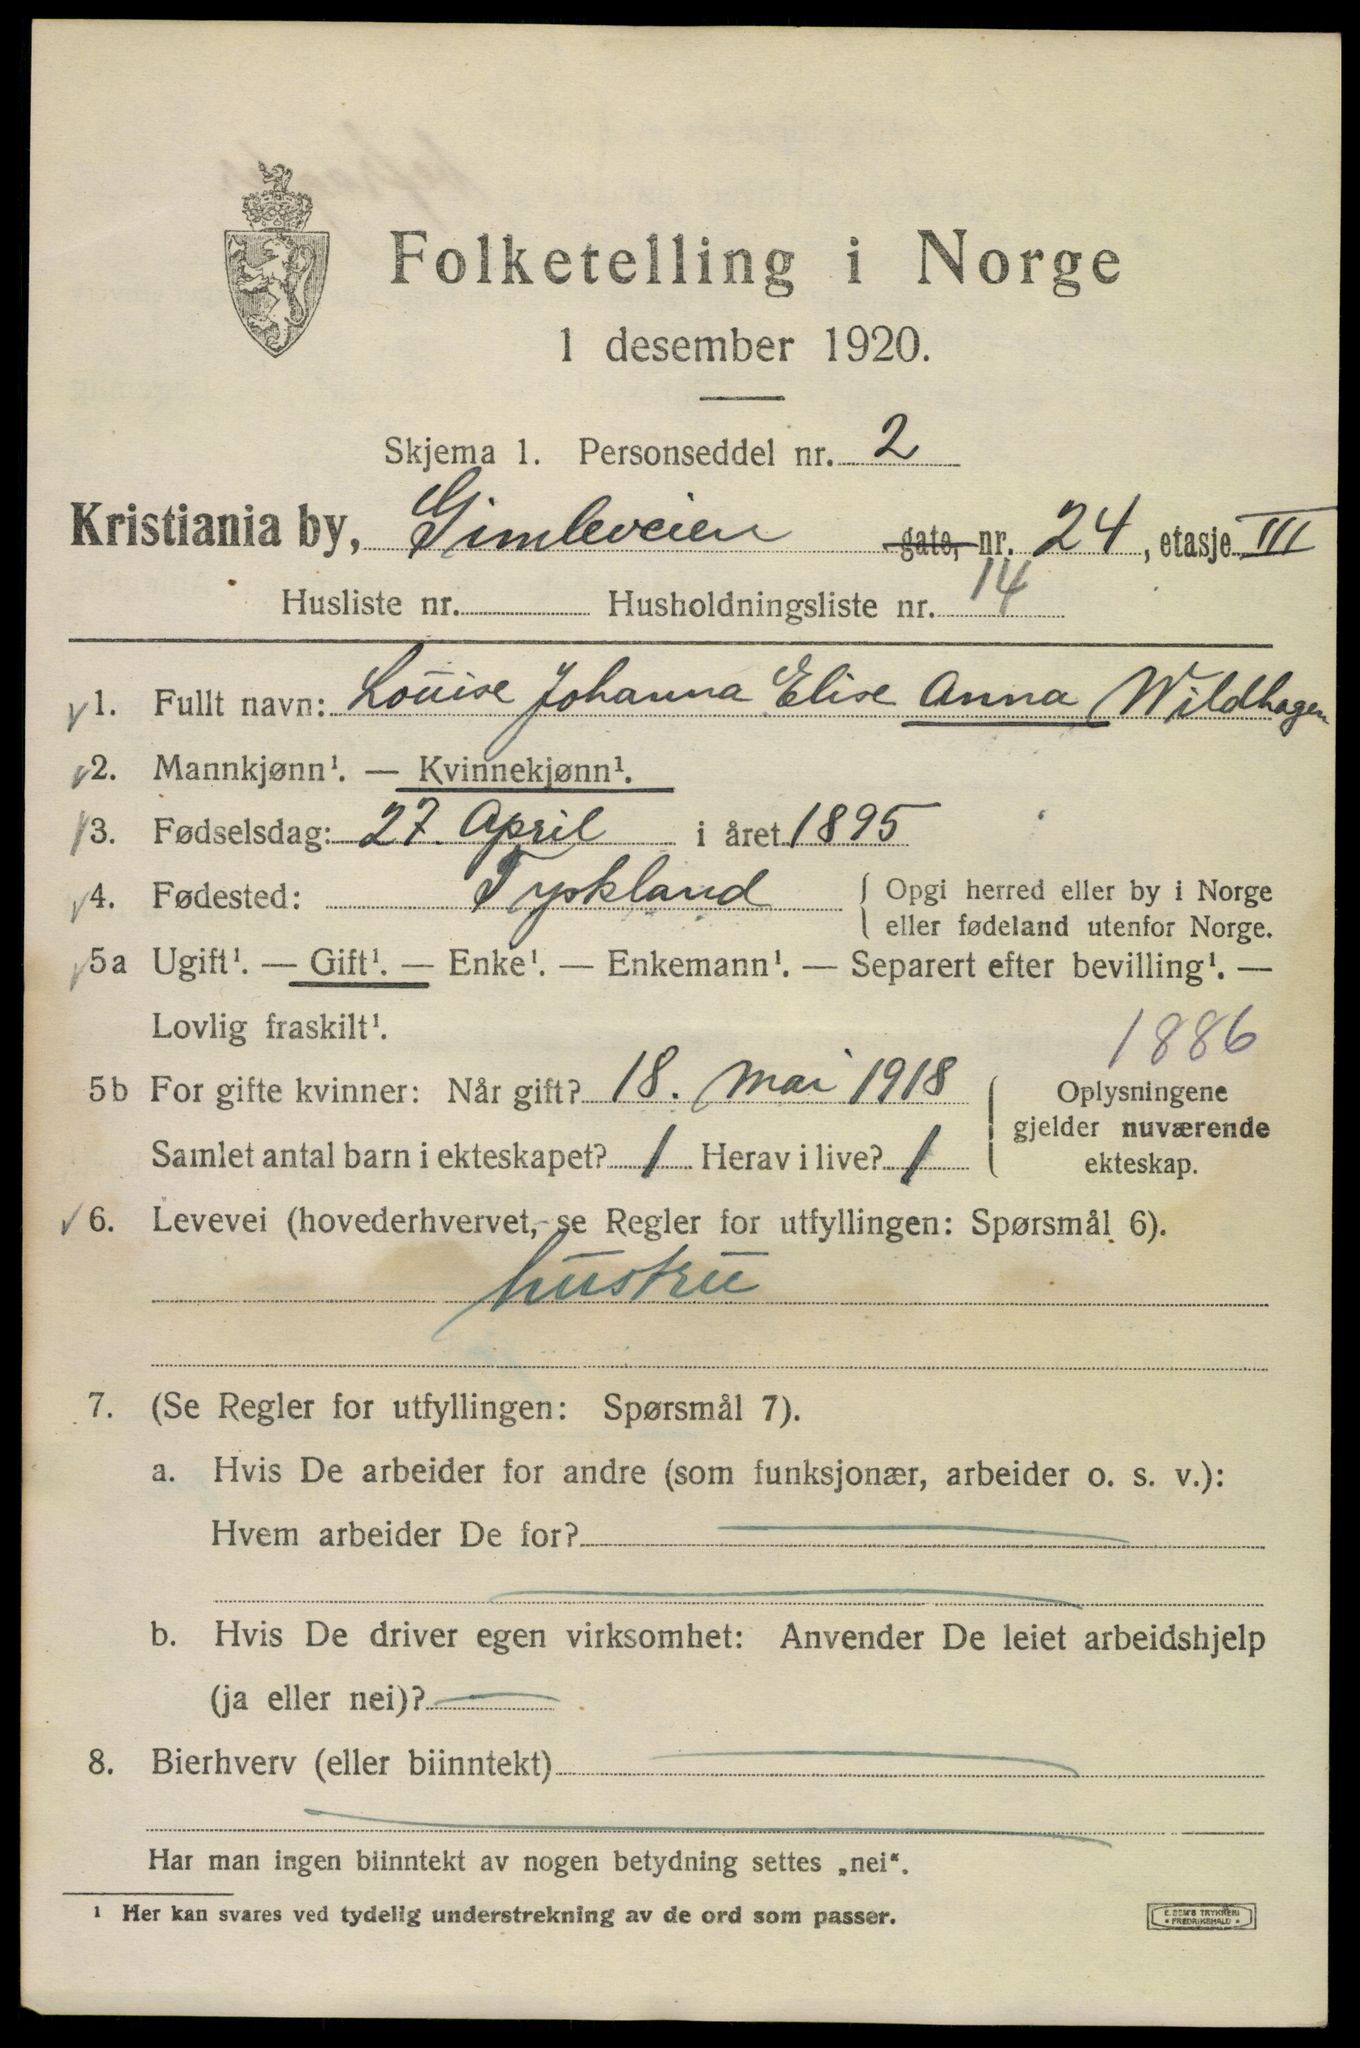 Folketelling i Norge
1 desember 1920.
Skjema 1. Personseddel nr. 2
Kristiania by, Gimleveien gate, nr. 24, etasje III
Husliste nr. Husholdningsliste nr. 14
1. Fullt navn: Louise Johanna Elise Anna Wildhagen
2. Mannkjønn¹. — Kvinnekjønn¹.
3. Fødselsdag: 27. April i året 1895
4. Fødested: Tyskland { Opgi herred eller by i Norge
eller fødeland utenfor Norge.
5a Ugift¹. — Gift¹. — Enke¹. — Enkemann¹. — Separert efter bevilling¹. —
Lovlig fraskilt¹.
1886
5b For gifte kvinner: Når gift? 18. Mai 1918
Samlet antal barn i ekteskapet? 1 Herav i live? 1
Oplysningene
gjelder nuværende
ekteskap.
6. Levevei (hovederhvervet, se Regler for utfyllingen: Spørsmål 6).
hustru
7. (Se Regler for utfyllingen: Spørsmål 7).
a. Hvis De arbeider for andre (som funksjonær, arbeider o. s. v.):
Hvem arbeider De for?
b. Hvis De driver egen virksomhet: Anvender De leiet arbeidshjelp
(ja eller nei)?
8. Bierhverv (eller biinntekt)
Har man ingen biinntekt av nogen betydning settes „nei“.
¹ Her kan svares ved tydelig understrekning av de ord som passer.
E. SEM'S TRYKKERI
• FREDRIKSHALD •